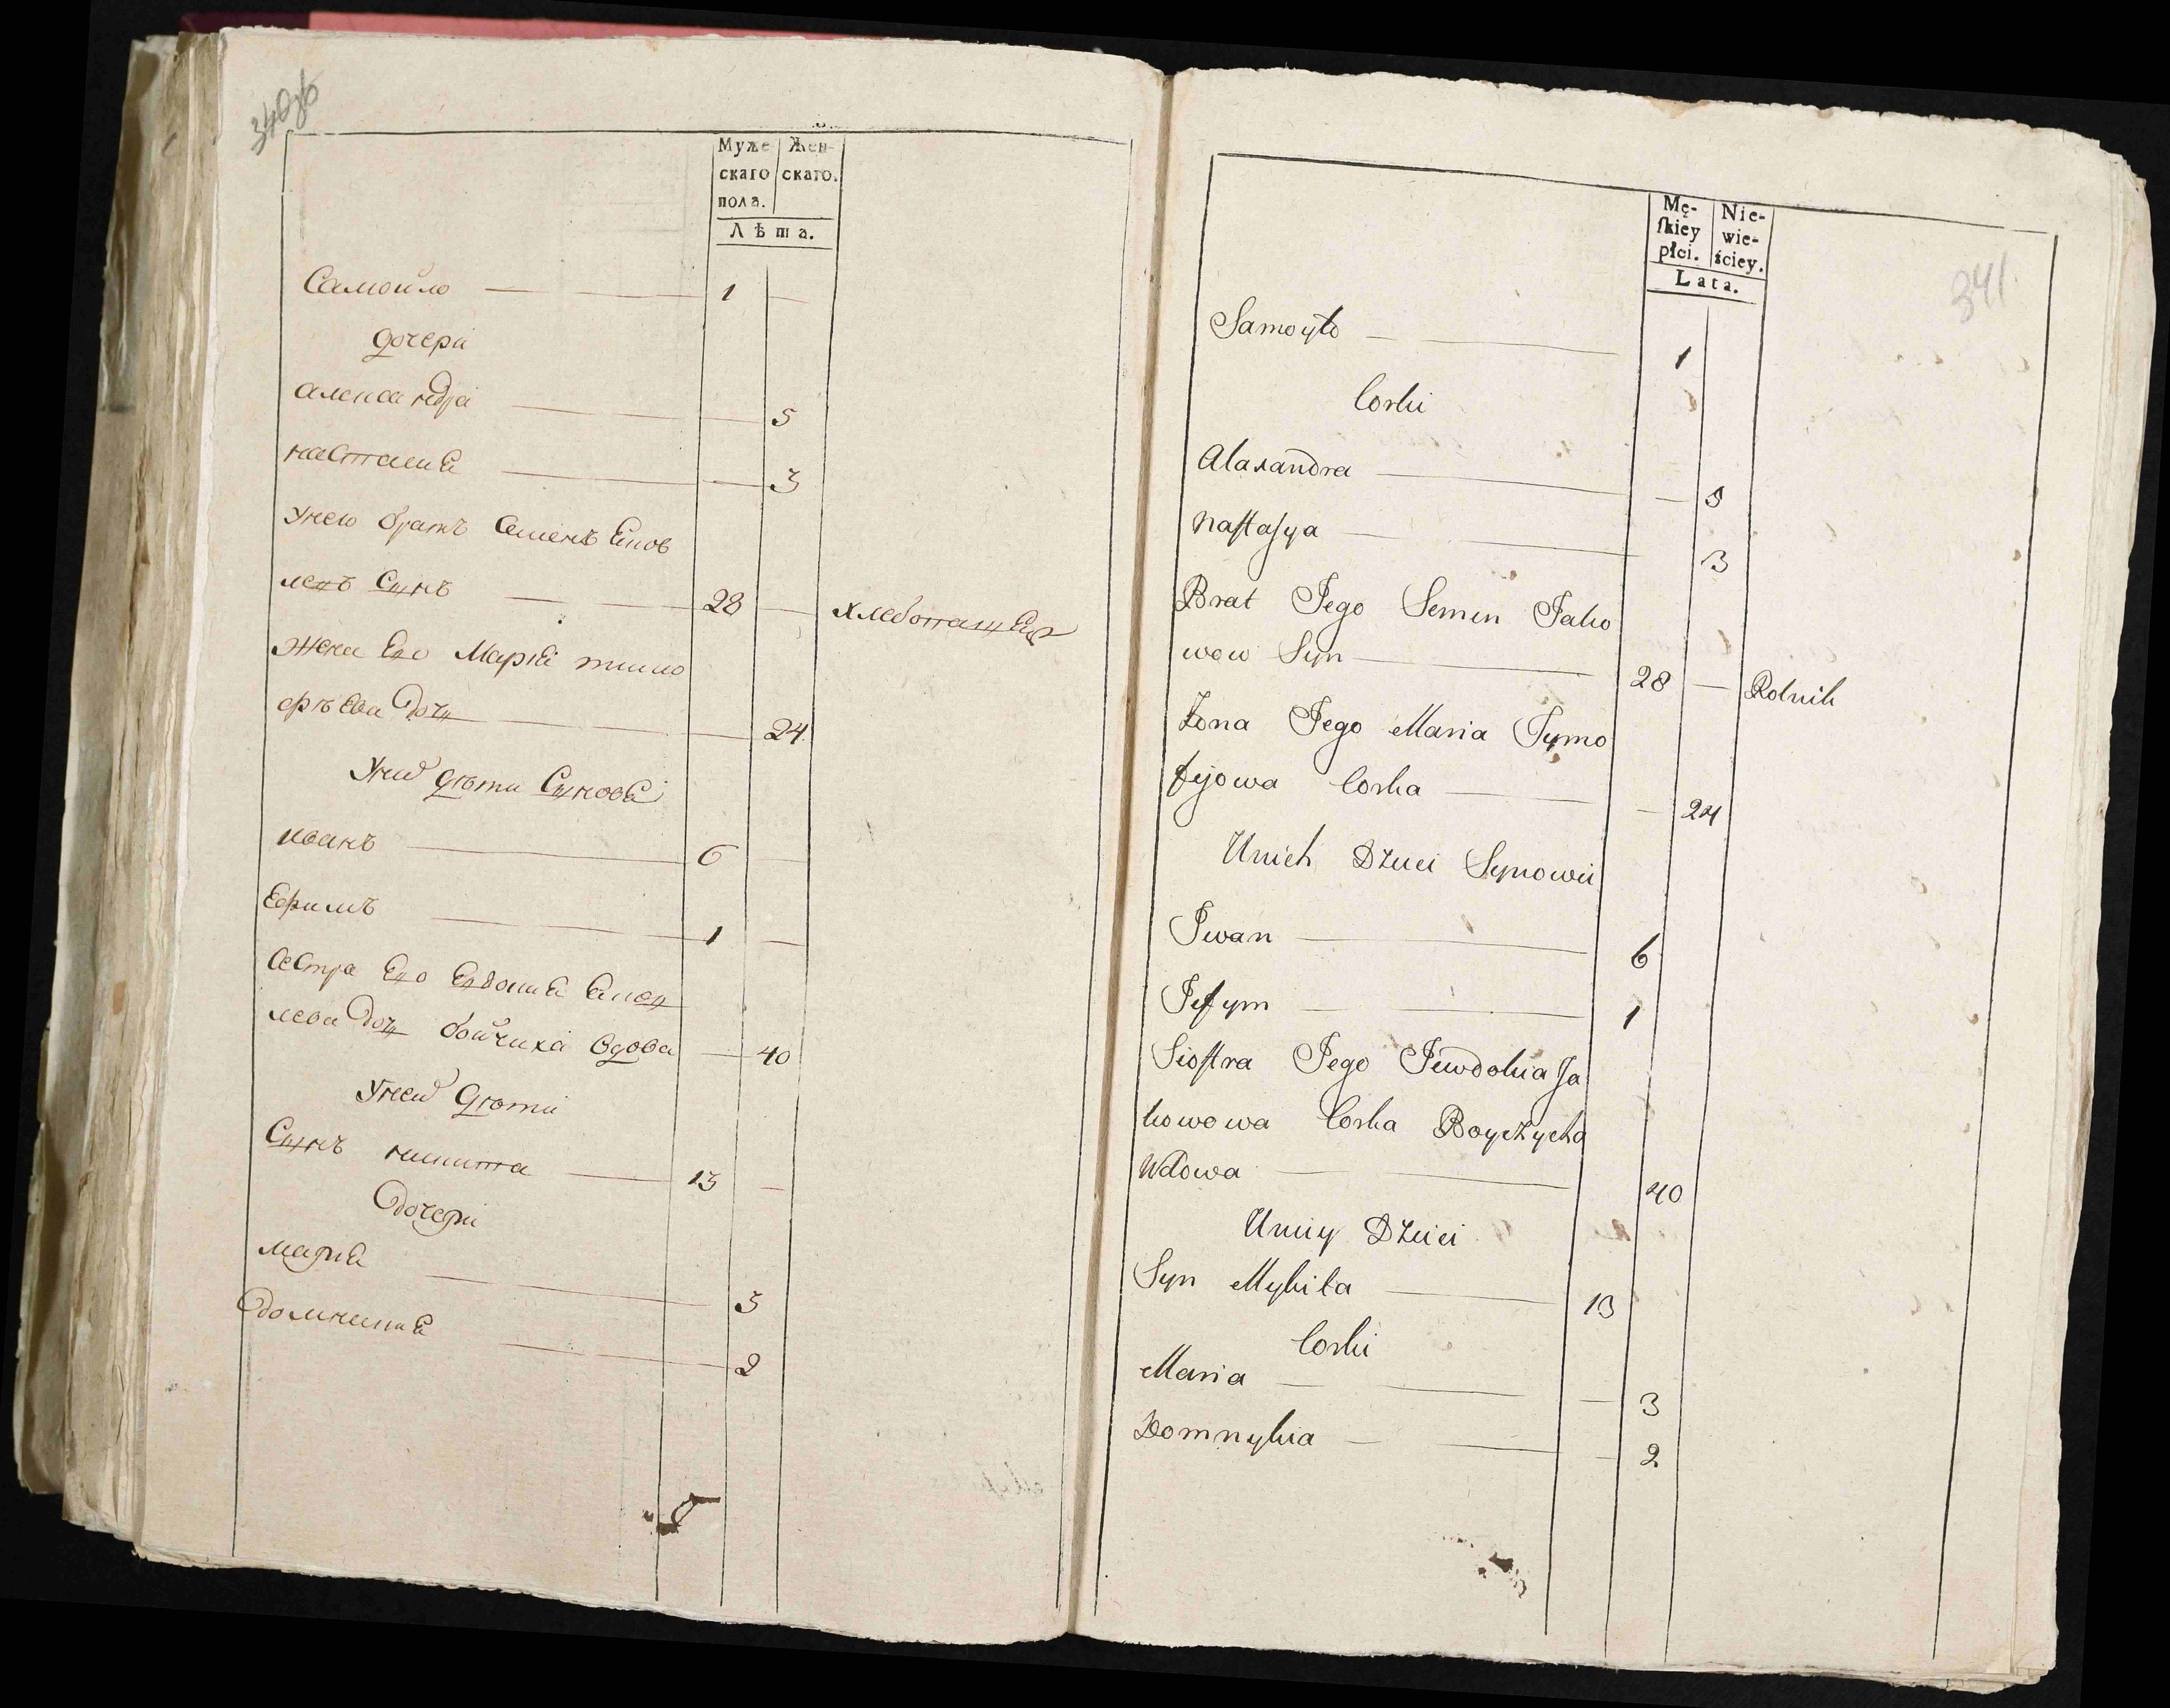 340об
Муже
скаго
пола.
Жен-
скаго.
Лѣта.
Самойло — 1 —
дочери
александра — 5
настасиа — 3
унего братъ Семенъ Яков
левъ Сынъ — 28 — хлебопашец
жена Его Мариа тимо
фѣева дочь — 24
Уних дѣти Сыновя
иванъ — 6 —
Ефимъ — 1 —
Сестра Его Евдокиа Яков
лева дочь бойчиха вдова — 40
Унеи дѣти
Сынъ никита — 13 —
дочери
мариа — 3
домникиа — 2
341.
Mę-
skiey
płci.
Nie-
wie-
ściey.
Lata.
Samoyło — 1
Corki
Alaxandra — 5
Nastasya — 3
Brat Jego Semen Jako
wow Syn — 28 — Rolnik
Zona Jego Maria Tymo
fijowa Corka — 24
Unich Dzieci Synowie
Iwan — 6
Jefym — 1
Siostra Jego Jewdokia Ja
kowowa Corka Boyczycha
Wdowa — 40
Uniey Dzieci
Syn Mykita — 13
Corki
Maria — 3
Domnykia — 2